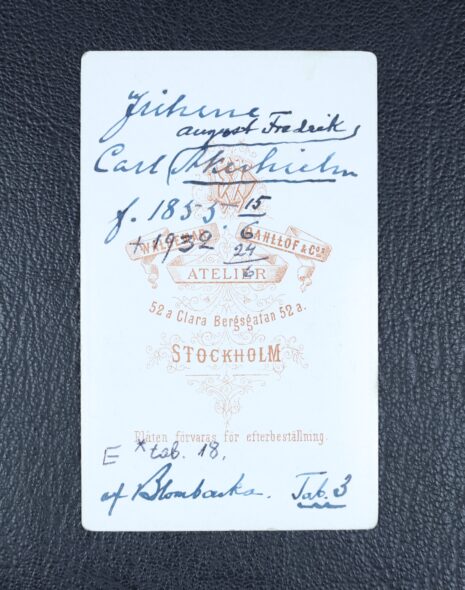 Friherre
August Fredrik
Carl Åkerhielm
f. 1855 15/6
+ 1932. 24/6
WALDEMAR DAHLLÖF & Co.
ATELIER
52 a Clara Bergsgatan 52 a.
STOCKHOLM
Plåten förvaras för efterbeställning.
E * tab. 18.
af Blombacka. Tab. 3